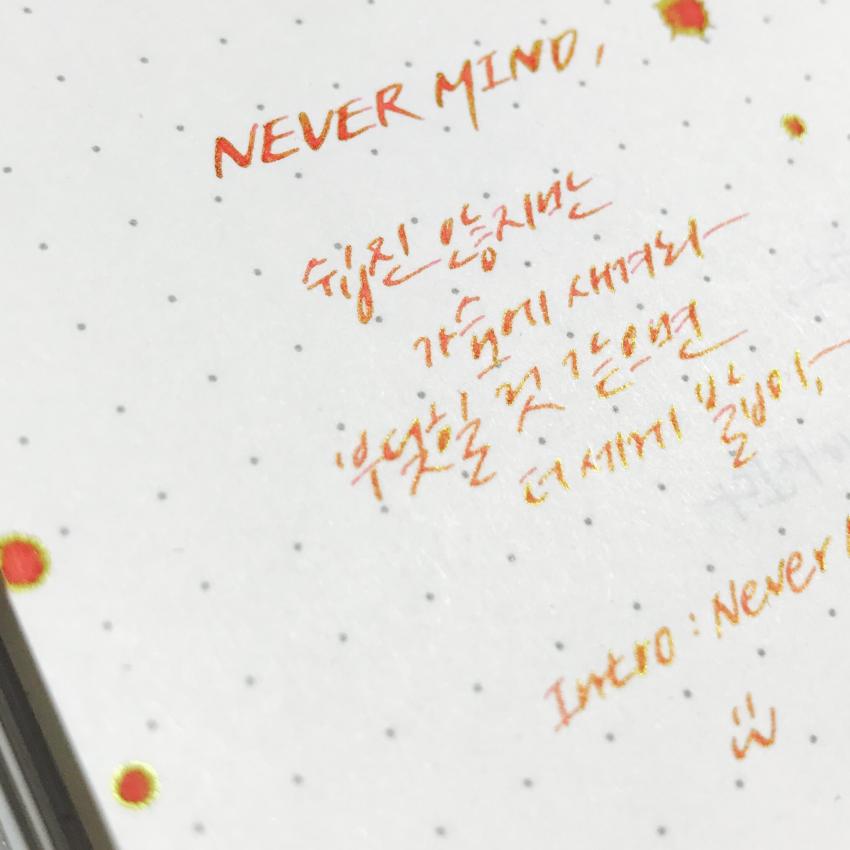 NEVER MIND,
쉽진 않지만
가슴에 새겨놔
부딪힐 것 같으면
더 세게 밟아,
Intro : Never